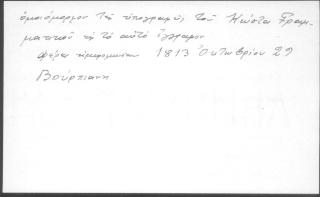 ὁμοιόμορφον τῆς ὑπογραφῆς τοῦ Κώστα Γραμ-
ματικοῦ εἰς τὸ αὐτὸ ἔγγραφον
φέρει ἡμερομηνίαν 1813 Ὀκτωβρίου 29
Βούρπιανη